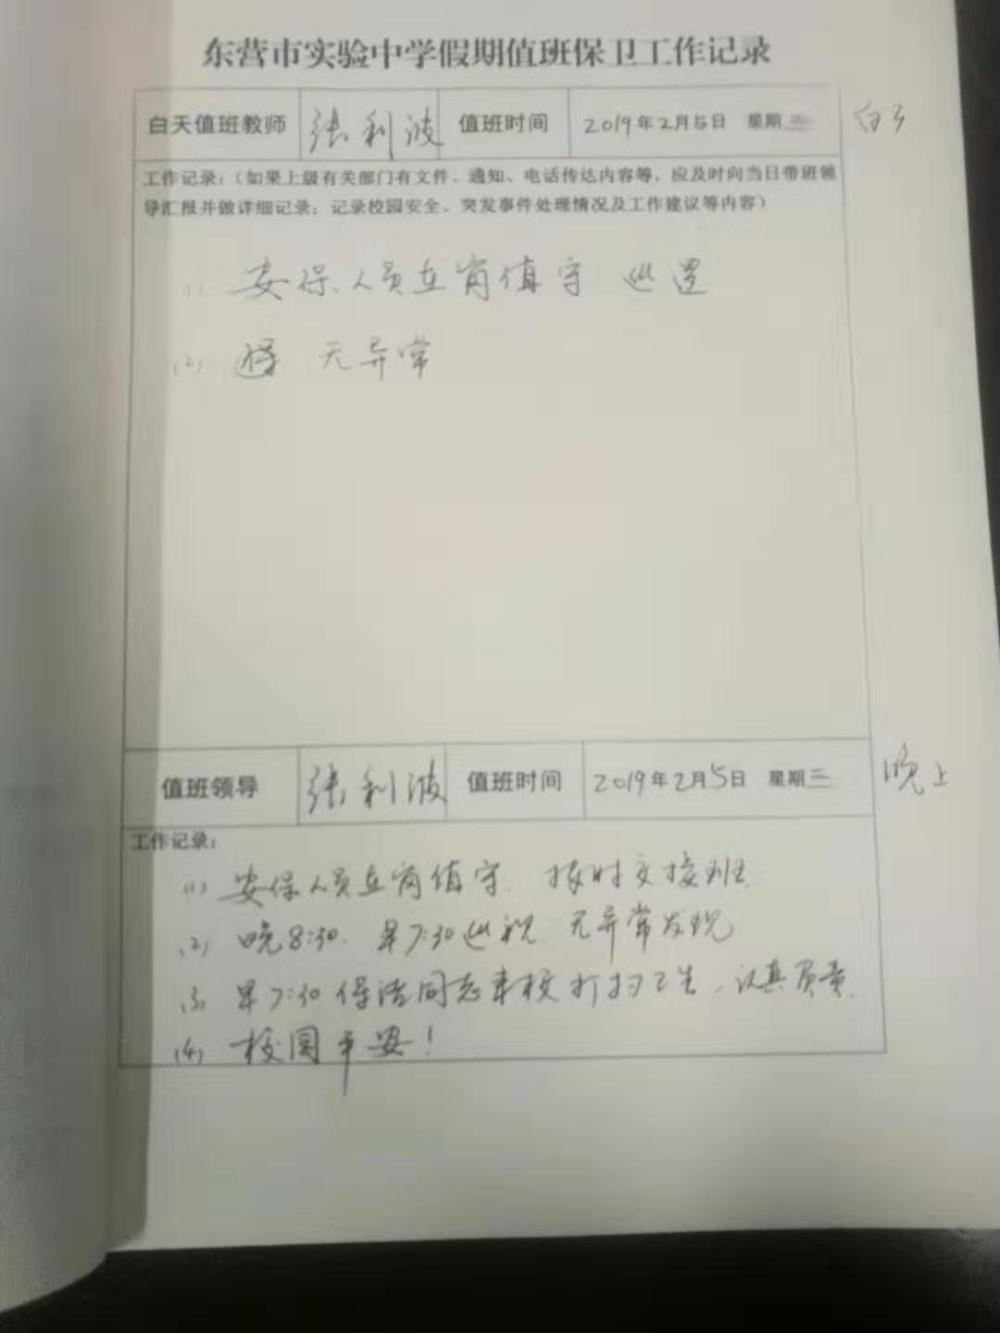 东营市实验中学假期值班保卫工作记录
白天值班教师 张利波 值班时间 2019年2月5日 星期三 白天
工作记录:(如果上级有关部门有文件、通知、电话传达内容等,应及时向当日带班领
导汇报并做详细记录;记录校园安全、突发事件处理情况及工作建议等内容)
(1) 安保人员立岗值守 巡逻
(2) 无异常
值班领导 张利波 值班时间 2019年2月5日 星期三 晚上
工作记录:
(1) 安保人员立岗值守 按时交接班
(2) 晚8:30. 早7:30巡视 无异常发现
(3) 早7:30保洁同志来校打扫卫生,认真负责.
(4) 校园平安!